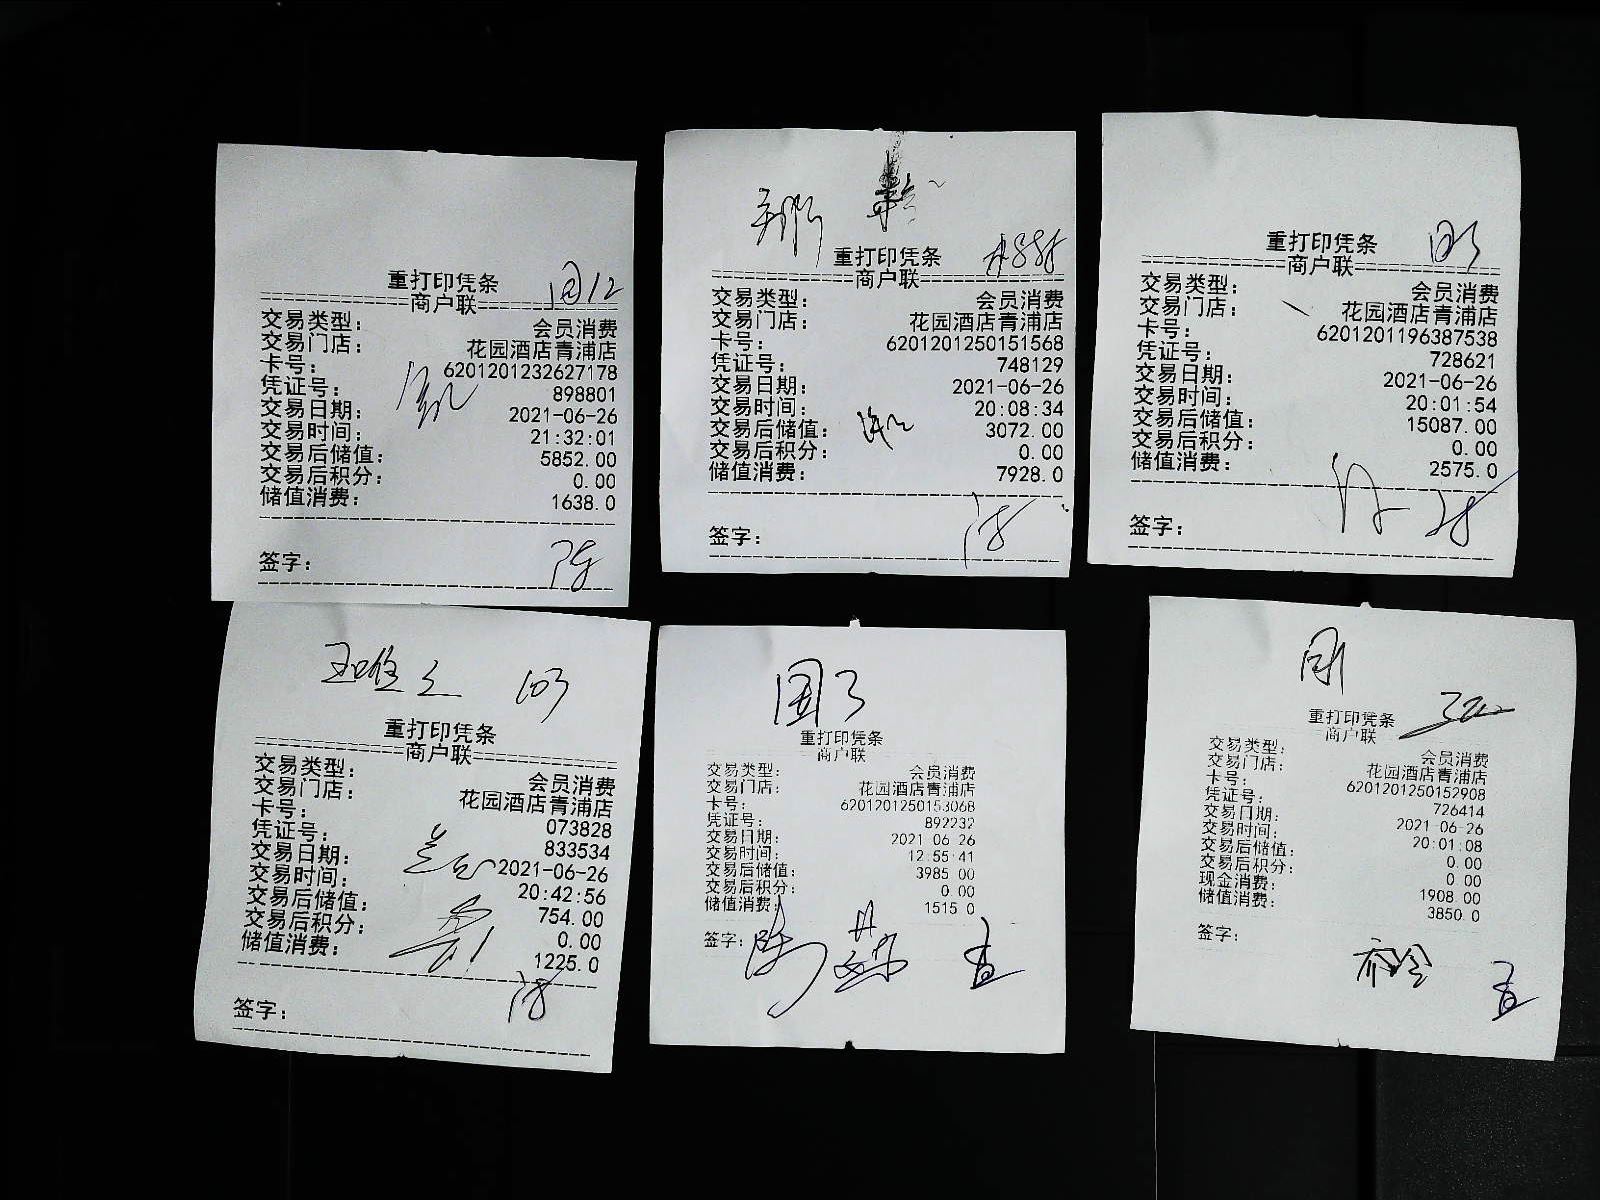 重打印凭条
==========商户联==========
交易类型: 会员消费
交易门店: 花园酒店青浦店
卡号: 6201201232627178
凭证号: 898801
交易日期: 2021-06-26
交易时间: 21:32:01
交易后储值: 5852.00
交易后积分: 0.00
储值消费: 1638.0
签字: 陈
重打印凭条
==========商户联==========
交易类型: 会员消费
交易门店: 花园酒店青浦店
卡号: 6201201250151568
凭证号: 748129
交易日期: 2021-06-26
交易时间: 20:08:34
交易后储值: 3072.00
交易后积分: 0.00
储值消费: 7928.0
签字:
重打印凭条
==========商户联==========
交易类型: 会员消费
交易门店: 花园酒店青浦店
卡号: 6201201196387538
凭证号: 728621
交易日期: 2021-06-26
交易时间: 20:01:54
交易后储值: 15087.00
交易后积分: 0.00
储值消费: 2575.0
签字:
103
重打印凭条
==========商户联==========
交易类型: 会员消费
交易门店: 花园酒店青浦店
卡号: 073828
凭证号: 833534
交易日期: 2021-06-26
交易时间: 20:42:56
交易后储值: 754.00
交易后积分: 0.00
储值消费: 1225.0
签字:
国3
重打印凭条
商户联
交易类型: 会员消费
交易门店: 花园酒店青浦店
卡号: 6201201250153068
凭证号: 892232
交易日期: 2021 06 26
交易时间: 12:55:41
交易后储值: 3985 00
交易后积分: 0 00
储值消费: 1515 0
签字:
重打印凭条
商户联
交易类型: 会员消费
交易门店: 花园酒店青浦店
卡号: 6201201250152908
凭证号: 726414
交易日期: 2021-06-26
交易时间: 20:01:08
交易后储值: 0.00
交易后积分: 0 00
现金消费: 1908 00
储值消费: 3850.0
签字: